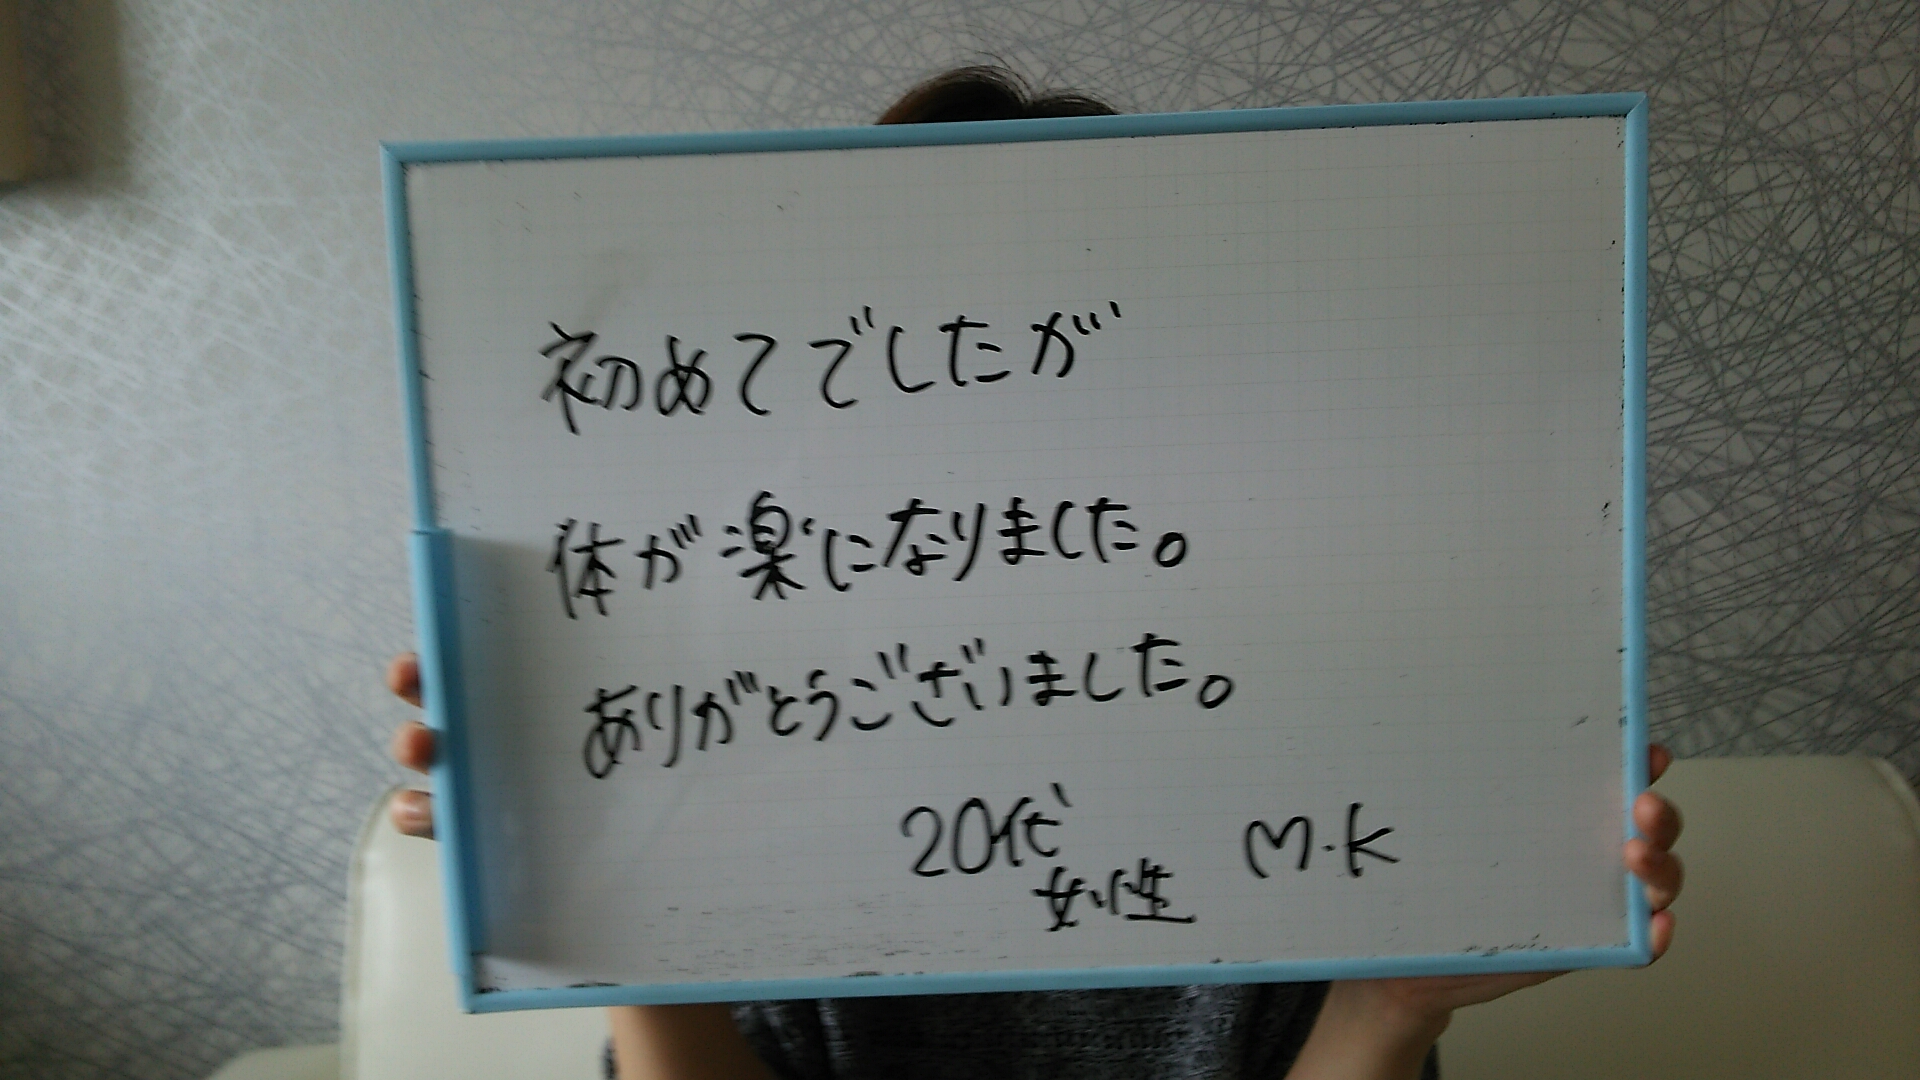 初めてでしたが
体が楽になりました。
ありがとうございました。
20代 M.K
女性